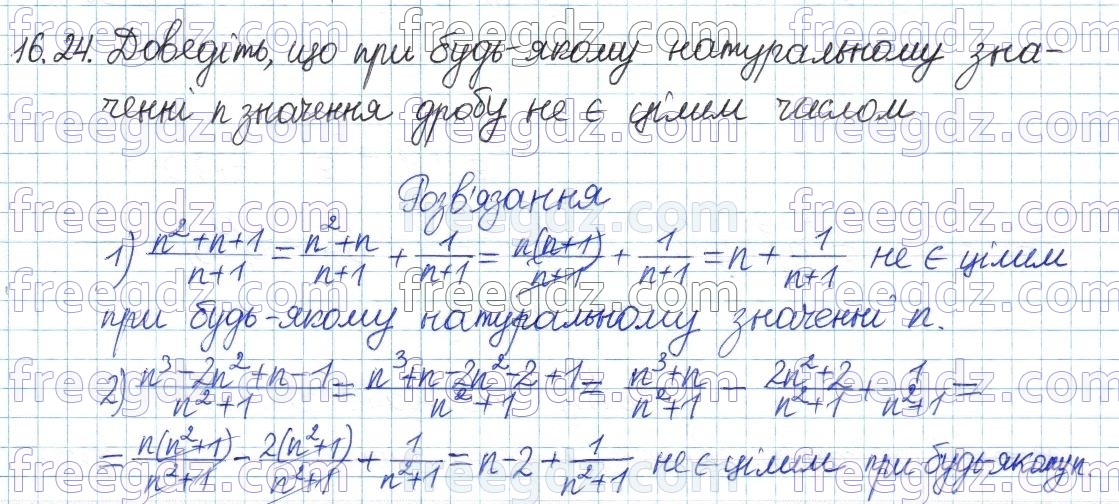 16.24. Доведіть, що при будь-якому натуральному зна-
ченні n значення дробу не є цілим числом
Розв'язання
1) (n²+n+1)/(n+1) = (n²+n)/(n+1) + 1/(n+1) = n(n+1)/(n+1) + 1/(n+1) = n + 1/(n+1) не є цілим
при будь-якому натуральному значенні n.
2) (n³-2n²+n-1)/(n²+1) = (n³+n-2n²-2+1)/(n²+1) = (n³+n)/(n²+1) - (2n²+2)/(n²+1) + 1/(n²+1) =
= n(n²+1)/(n²+1) - 2(n²+1)/(n²+1) + 1/(n²+1) = n-2 + 1/(n²+1) не є цілим при будь якому n.
freegdz.com